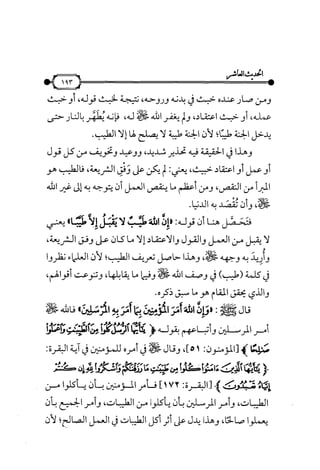 الحديث العاشر
١٩٣
ومن صار عنده خبث في بدنه وروحه، نتيجة لخبث قوله، أو خبث
عمله، أو خبث اعتقاد، ولم يغفر الله ﷻ له، فإنه يُطَهَّر بالنار حتى
يدخل الجنة طيبًا؛ لأن الجنة طيبة لا يصلح لها إلا الطيب.
وهذا في الحقيقة فيه تحذير شديد، ووعيد وتخويف من كل قول
أو عمل أو اعتقاد خبيث، يعني: لم يكن على وَفْقِ الشريعة، فالطيب هو
المبرأ من النقص، ومن أعظم ما ينقص العمل أن يتوجه به إلى غير الله
ﷻ، وأن تُقْصَد به الدنيا.
فتَحَصَّل هنا أن قوله: «إِنَّ اللهَ طَيِّبٌ لَا يَقْبَلُ إِلَّا طَيِّبًا» يعني
لا يقبل من العمل والقول والاعتقاد إلا ما كان على وفق الشريعة،
وأُريدَ به وجهه ﷻ، وهذا حاصل تعريف الطيب؛ لأن العلماء نظروا
في كلمة (طيب) في وصف الله ﷻ وفيما يقابلها، وتنوعت أقوالهم،
والذي يحقق المقام هو ما سبق ذكره.
قال ﷺ: «وَإِنَّ اللهَ أَمَرَ الْمُؤْمِنِينَ بِمَا أَمَرَ بِهِ الْمُرْسَلِينَ» فالله ﷻ
أمر المرسلين وأتباعهم بقوله ﴿يَٰٓأَيُّهَا ٱلرُّسُلُ كُلُوا۟ مِنَ ٱلطَّيِّبَٰتِ وَٱعْمَلُوا۟
صَٰلِحًا﴾ [المؤمنون: ٥١]، وقال ﷻ في أمره للمؤمنين في آية البقرة:
﴿يَٰٓأَيُّهَا ٱلَّذِينَ ءَامَنُوا۟ كُلُوا۟ مِن طَيِّبَٰتِ مَا رَزَقْنَٰكُمْ وَٱشْكُرُوا۟ لِلَّهِ إِن كُنتُمْ
إِيَّاهُ تَعْبُدُونَ﴾ [البقرة: ١٧٢] فأمر المؤمنين بأن يأكلوا من
الطيبات، وأمر المرسلين بأن يأكلوا من الطيبات، وأمر الجميع بأن
يعملوا صالحًا، وهذا يدل على أثر أكل الطيبات في العمل الصالح؛ لأن